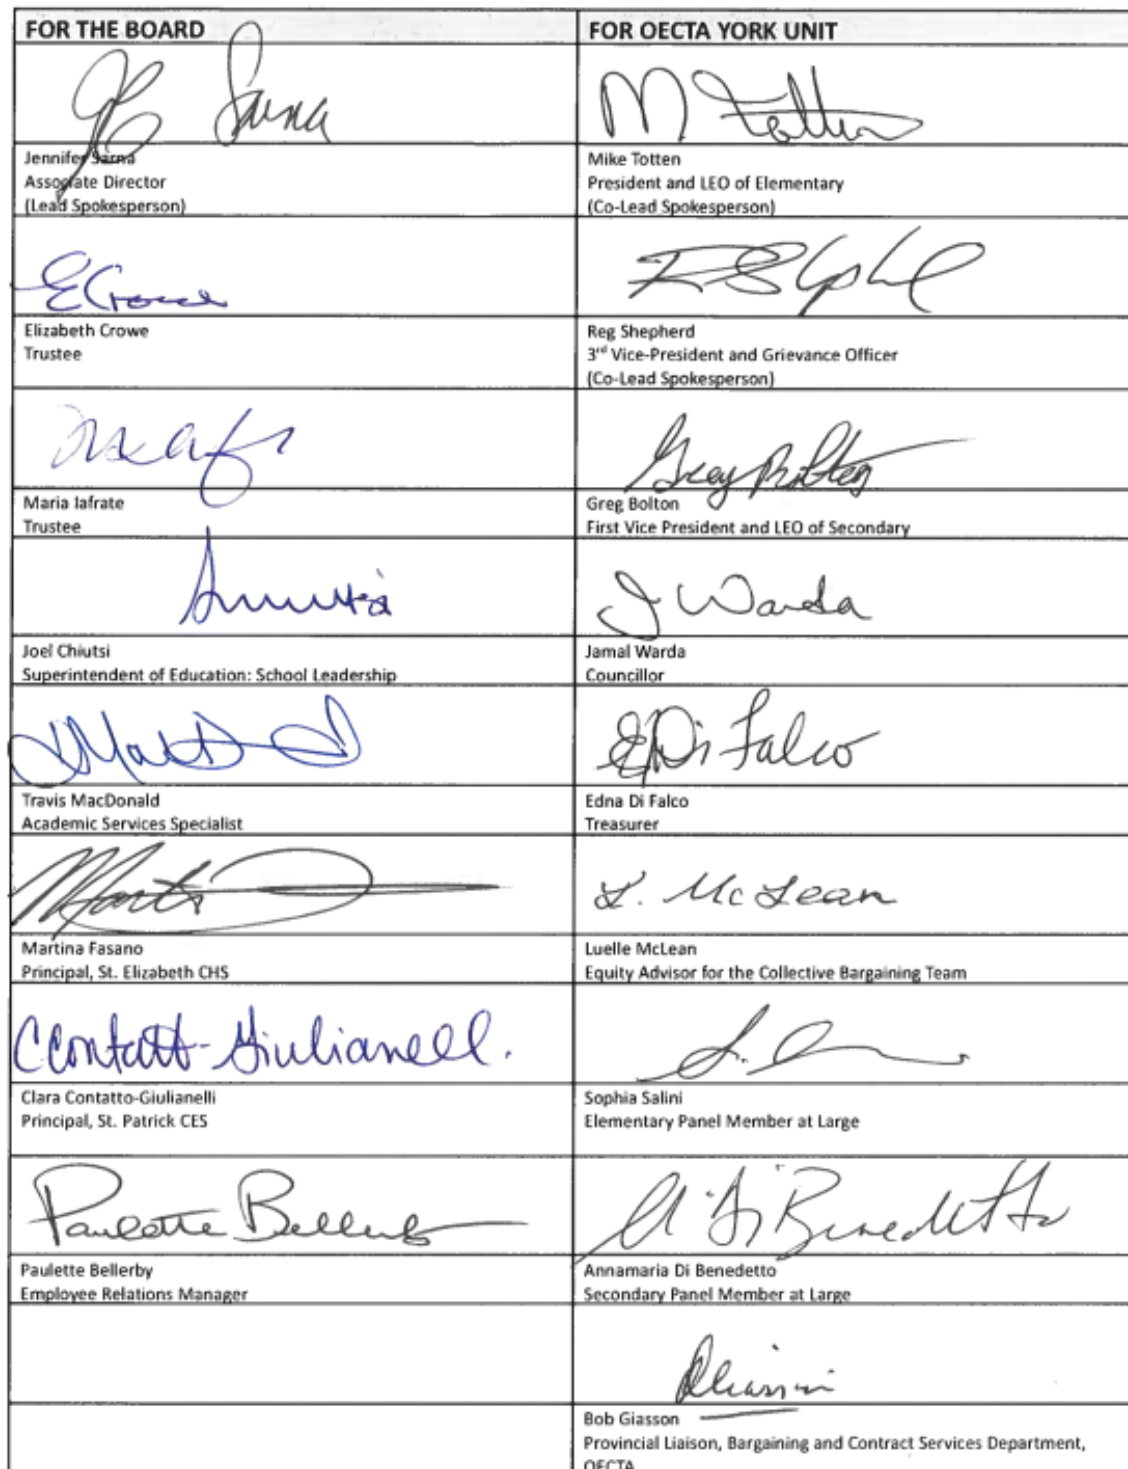 FOR THE BOARD
FOR OECTA YORK UNIT
Sarna
M Totten
Jennifer Sarna
Associate Director
(Lead Spokesperson)
Mike Totten
President and LEO of Elementary
(Co-Lead Spokesperson)
ECrowe
Elizabeth Crowe
Trustee
Reg Shepherd
3rd Vice-President and Grievance Officer
(Co-Lead Spokesperson)
Greg Bolton
Maria Iafrate
Trustee
Greg Bolton
First Vice President and LEO of Secondary
J Warda
Joel Chiutsi
Superintendent of Education: School Leadership
Jamal Warda
Councillor
E Di Falco
Travis MacDonald
Academic Services Specialist
Edna Di Falco
Treasurer
L. McLean
Martina Fasano
Principal, St. Elizabeth CHS
Luelle McLean
Equity Advisor for the Collective Bargaining Team
CContatt-Giulianell.
Clara Contatto-Giulianelli
Principal, St. Patrick CES
Sophia Salini
Elementary Panel Member at Large
Paulette Bellerby
A Di Benedetto
Paulette Bellerby
Employee Relations Manager
Annamaria Di Benedetto
Secondary Panel Member at Large
Bob Giasson
Provincial Liaison, Bargaining and Contract Services Department,
OECTA